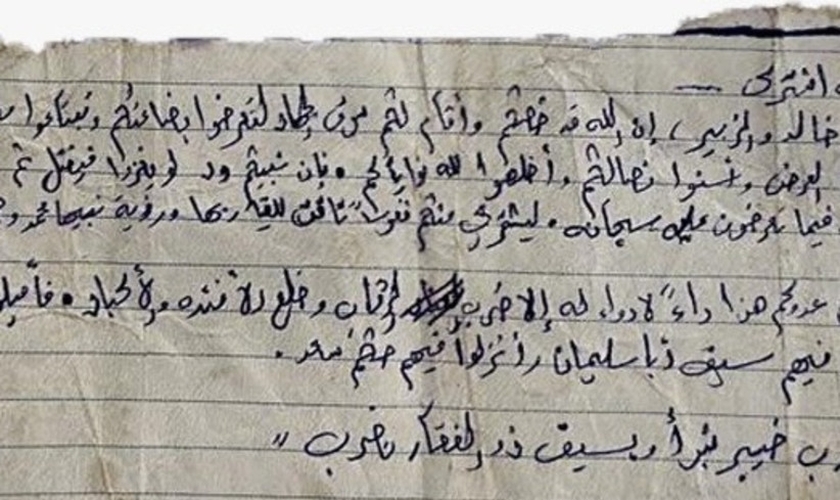 اشترى
خالد والزبير، إن الله قد خصكم وأقام لكم سوق الجهاد لتعرضوا بضاعتكم وتبتاعوا
العرض وأحسنوا نصالكم وأخلصوا لله نواياكم. فإن نبيكم ود لو يغزوا فيقتل ثم
فيما تعرضون عليه سبحانه. ليشتري منكم نفوساً تاقت للقاء ربها ورؤية نبيها محمد
عدوكم هذا داءً لا دواء له إلا ضرب الرقاب وخلع الأفئدة والأكباد.
فيهم سيف أبا سليمان وأنزلوا فيهم حكم سعد.
خيبر نبرأ وبسيف ذو الفقار نضرب"